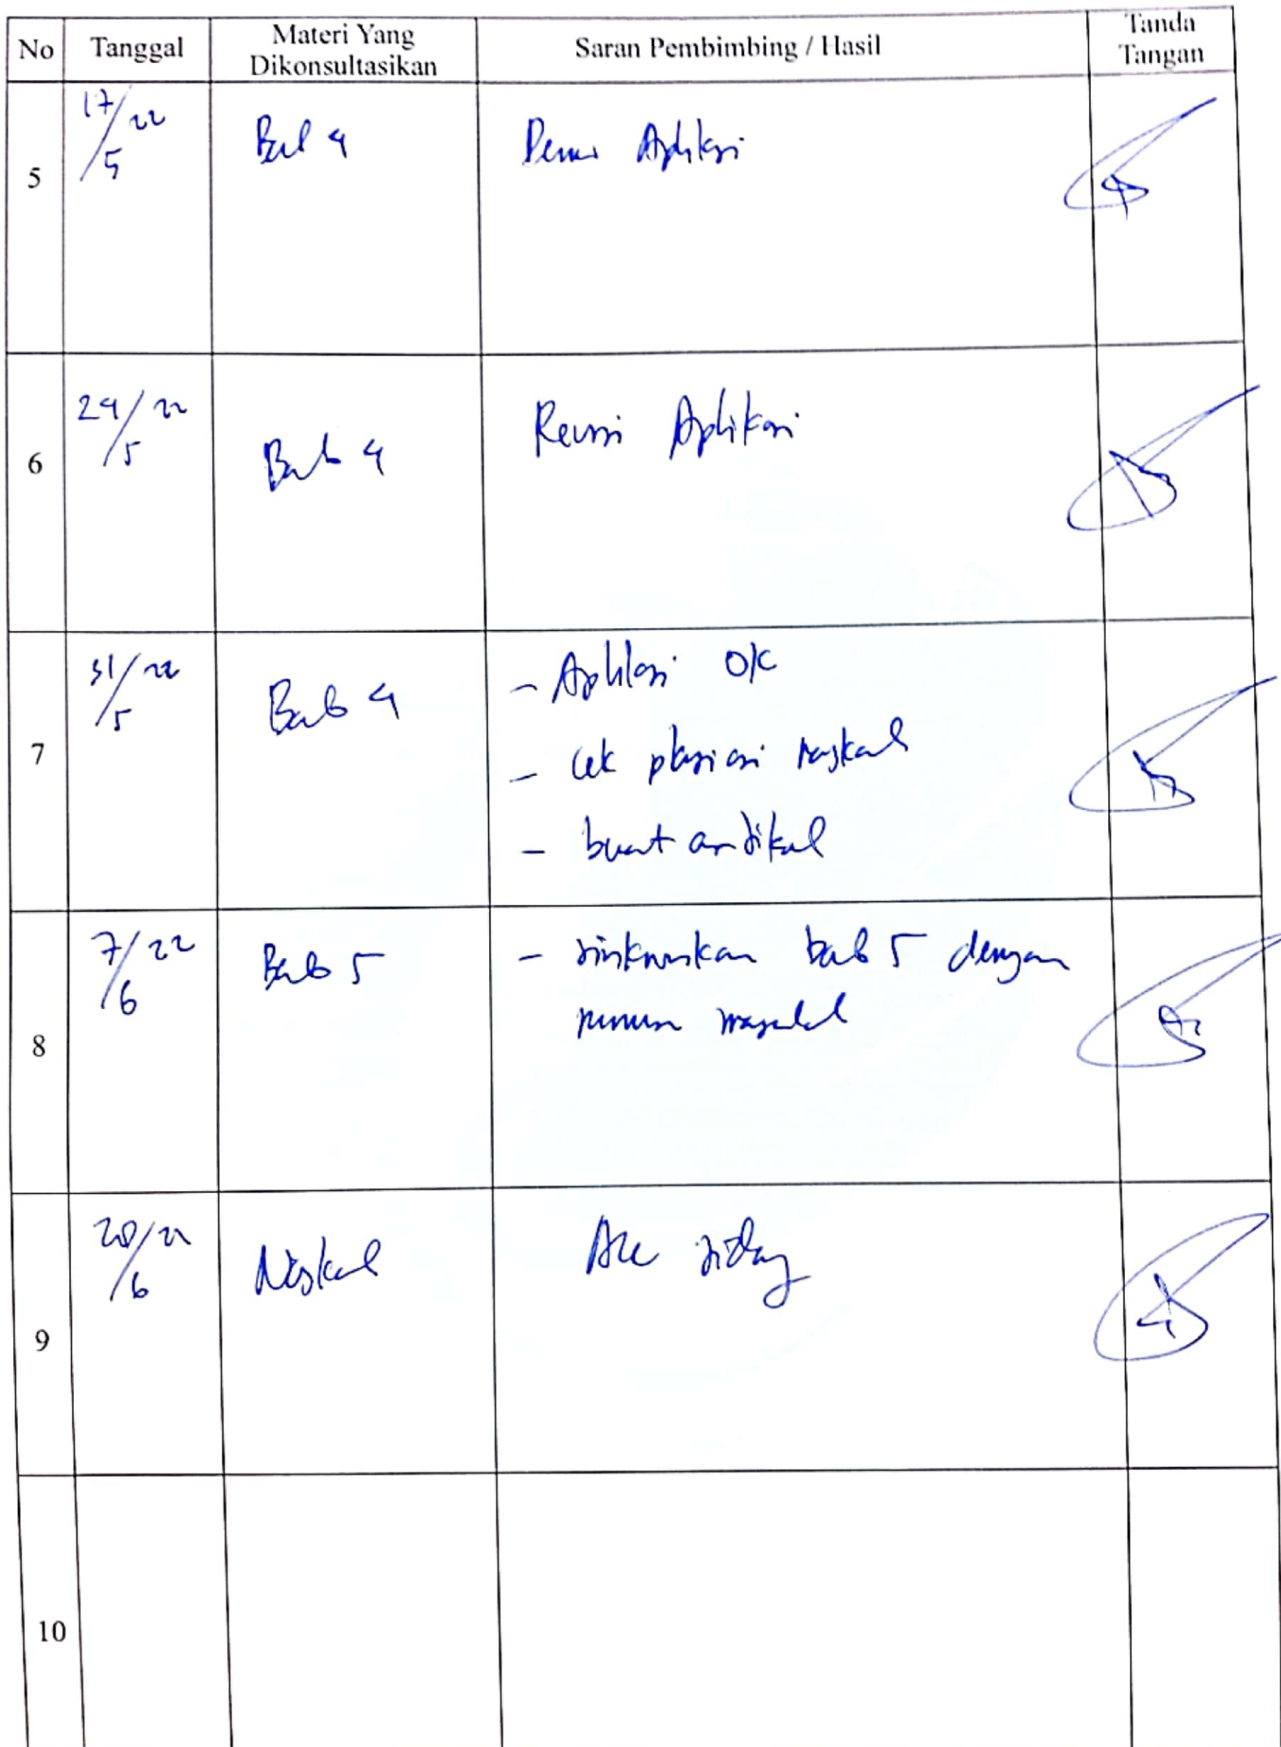 No Tanggal Materi Yang Dikonsultasikan Saran Pembimbing / Hasil Tanda Tangan
5 17/5 22 Bab 4 Demo Aplikasi
6 24/5 22 Bab 4 Revisi Aplikasi
7 31/5 22 Bab 4 - Aplikasi OK
- cek plagiasi naskah
- buat artikel
8 7/6 22 Bab 5 - sinkronkan bab 5 dengan
rumusan masalah
9 20/6 22 Naskah Acc sidang
10